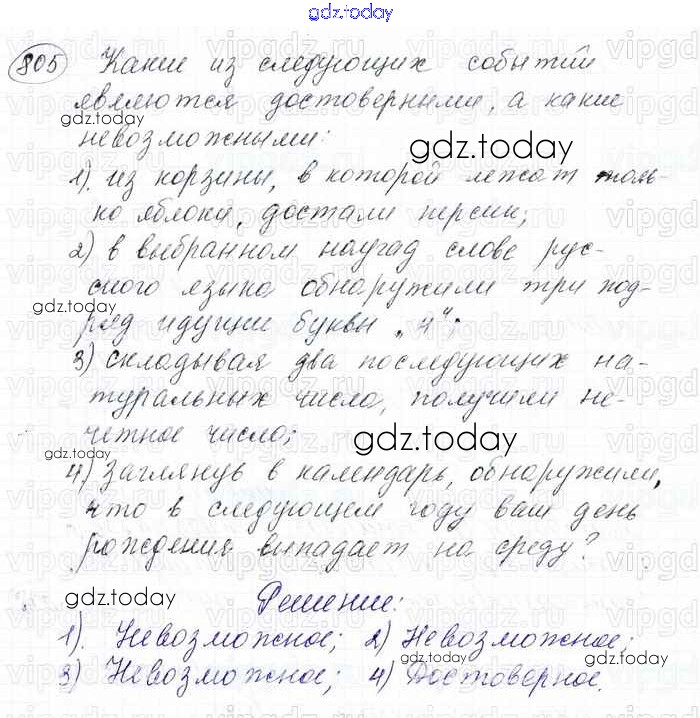 gdz.today
805 Какие из следующих событий
являются достоверными, а какие
gdz.today
невозможными:
gdz.today
1). из корзины, в которой лежат толь-
ко яблоки, достали персик;
2) в выбранном наугад слове рус-
ского языка обнаружили три под-
gdz.today
ряд идущие буквы „Ч“;
3) складывая два последующих на-
туральных числа, получили не-
четное число;
gdz.today
4) Заглянув в календарь, обнаружили,
что в следующем году ваш день
рождения выпадает на среду?
gdz.today
Решение:
1). Невозможное; 2) Невозможное;
gdz.today
gdz.today
3) Невозможное; 4) Достоверное.